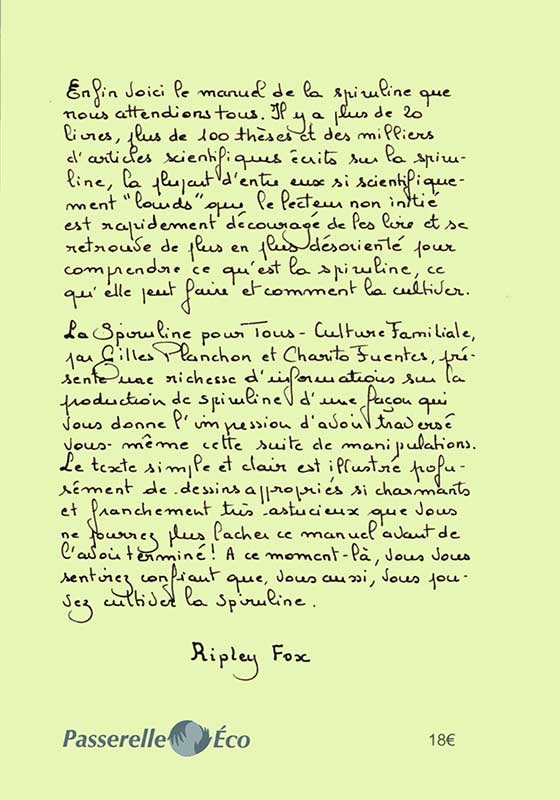 Enfin voici le manuel de la spiruline que
nous attendions tous. Il y a plus de 20
livres, plus de 100 thèses et des milliers
d'articles scientifiques écrits sur la spiru-
line, la plupart d'entre eux si scientifique-
ment "lourds" que le lecteur non initié
est rapidement découragé de les lire et se
retrouve de plus en plus désorienté pour
comprendre ce qu'est la spiruline, ce
qu'elle peut faire et comment la cultiver.
La Spiruline pour Tous - Culture Familiale,
par Gilles Planchon et Charito Fuentes, pré-
sente une richesse d'informations sur la
production de spiruline d'une façon qui
vous donne l'impression d'avoir traversé
vous-même cette suite de manipulations.
Le texte simple et clair est illustré profu-
sément de dessins appropriés si charmants
et franchement très astucieux que vous
ne pourrez plus lacher ce manuel avant de
l'avoir terminé ! A ce moment-là, vous vous
sentirez confiant que, vous aussi, vous pou-
vez cultiver la spiruline.
Ripley Fox
Passerelle Éco
18€